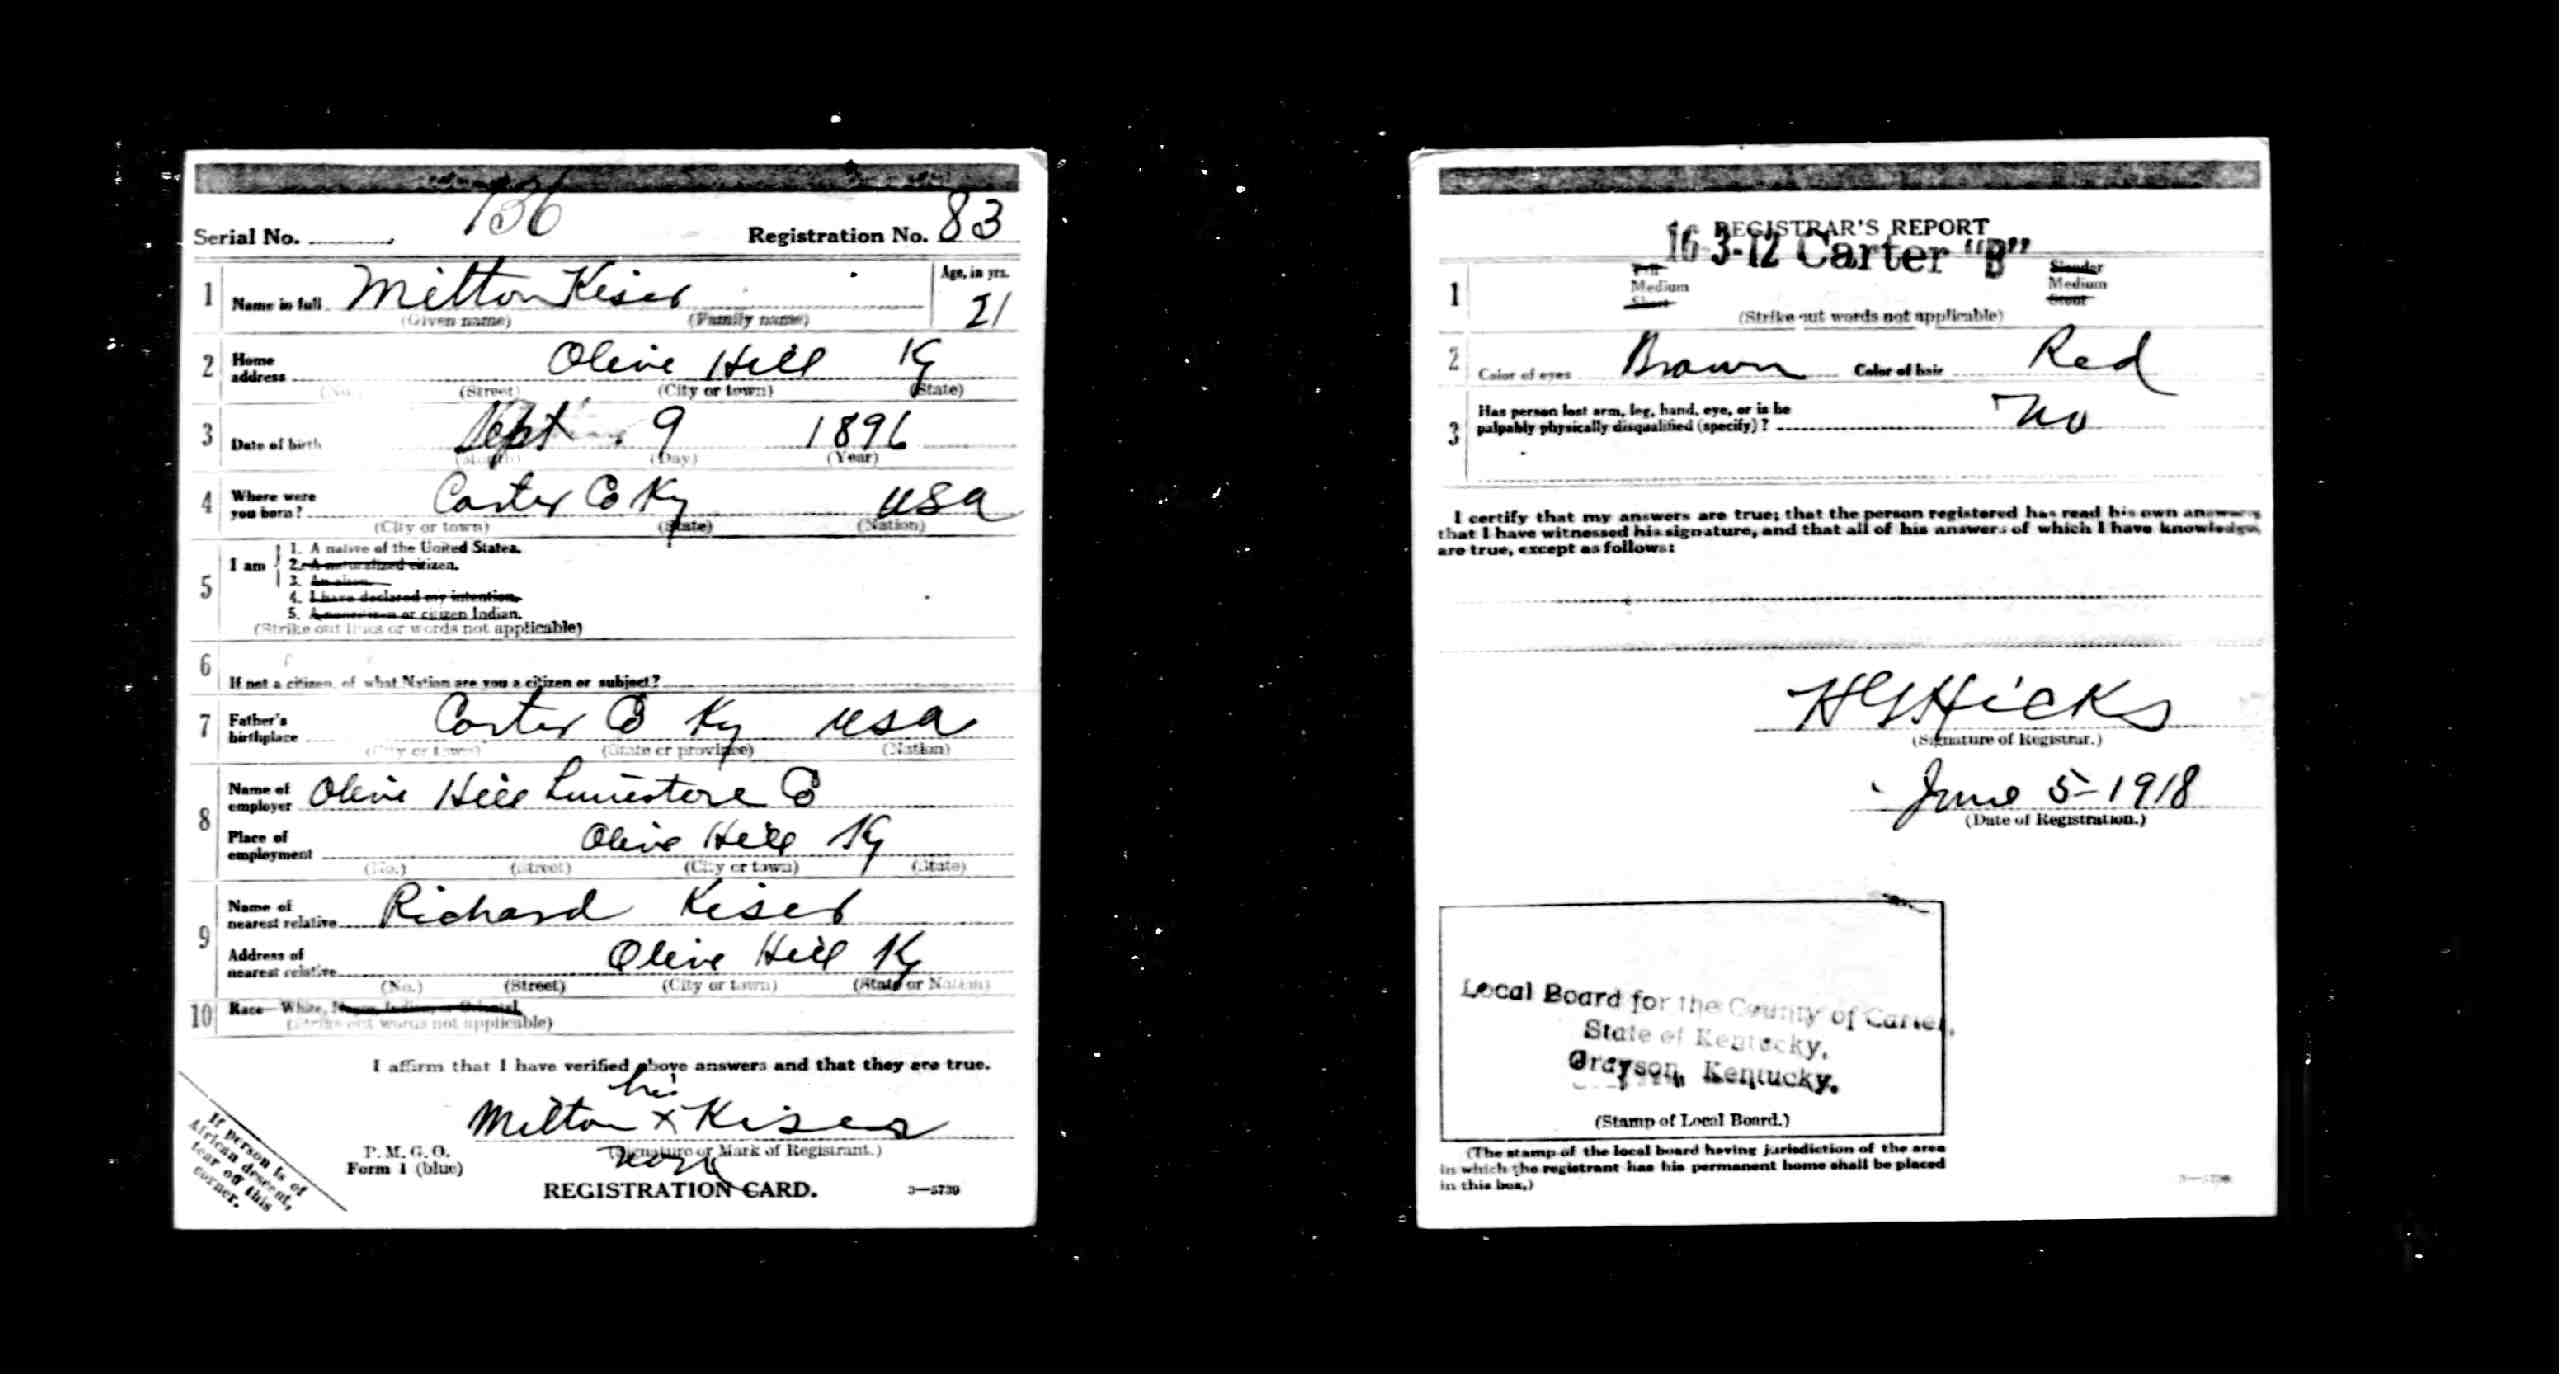 136
Serial No. Registration No. 83
1 Name in full Milton Kiser Age, in yrs. 21
(Given name) (Family name)
2 Home address Olive Hill Ky
(No.) (Street) (City or town) (State)
3 Date of birth Sept 9 1896
(Month) (Day) (Year)
4 Where were you born? Carter Co Ky USA
(City or town) (State) (Nation)
5 I am
1. A native of the United States.
2. A naturalized citizen.
3. An alien.
4. I have declared my intention.
5. A noncitizen or citizen Indian.
(Strike out lines or words not applicable)
6 If not a citizen, of what Nation are you a citizen or subject?
7 Father's birthplace Carter Co Ky USA
(City or town) (State or province) (Nation)
8 Name of employer Olive Hill Limestone Co
Place of employment Olive Hill Ky
(No.) (Street) (City or town) (State)
9 Name of nearest relative Richard Kiser
Address of nearest relative Olive Hill Ky
(No.) (Street) (City or town) (State or Nation)
10 Race—White, Negro, Indian, or Oriental
(Strike out words not applicable)
I affirm that I have verified above answers and that they are true.
his
Milton x Kiser
(Signature or Mark of Registrant.)
mark
P. M. G. O.
Form 1 (blue)
REGISTRATION CARD. 3—5739
If person is of
African descent,
tear off this
corner.
REGISTRAR'S REPORT
16-3-12 Carter "B"
1 Tall Medium Short Slender Medium Stout
(Strike out words not applicable)
2 Color of eyes Brown Color of hair Red
3 Has person lost arm, leg, hand, eye, or is he
palpably physically disqualified (specify)? No
I certify that my answers are true; that the person registered has read his own answers,
that I have witnessed his signature, and that all of his answers of which I have knowledge
are true, except as follows:
H G Hicks
(Signature of Registrar.)
June 5-1918
(Date of Registration.)
Local Board for the County of Carter,
State of Kentucky,
Grayson, Kentucky.
(Stamp of Local Board.)
(The stamp of the local board having jurisdiction of the area
in which the registrant has his permanent home shall be placed
in this box.)